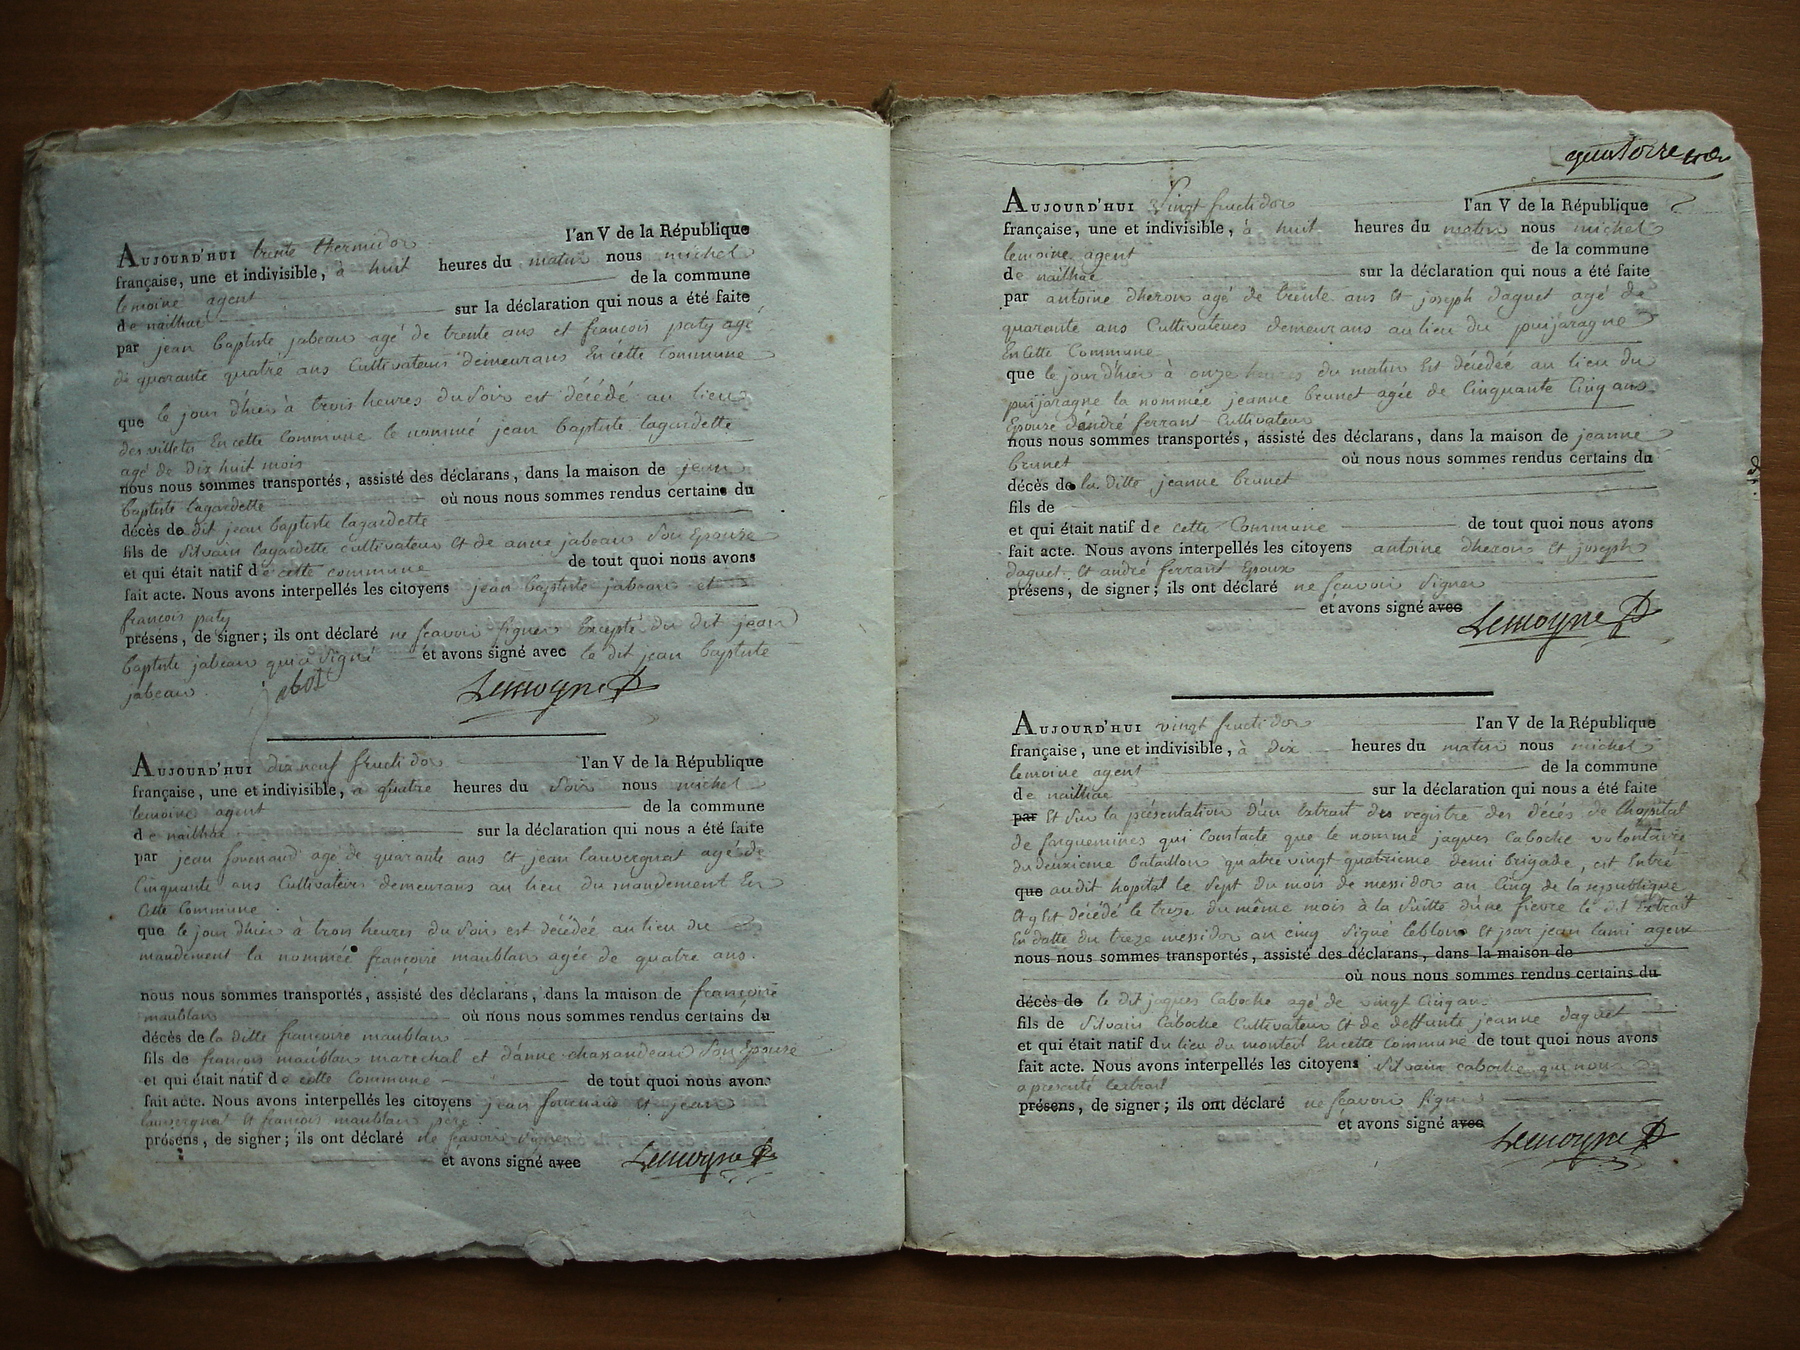 AUJOURD'HUI trente thermidor l'an V de la République
française, une et indivisible, à huit heures du matin nous michel
lemoine agent de la commune
de naillhac sur la déclaration qui nous a été faite
par jean baptiste jabeau agé de trente ans et françois paty agé
de quarante quatre ans Cultivateurs demeurans En cette Commune
que le jour d'hier à trois heures du Soir est décédé au lieu
des villetes En cette Commune le nommé jean baptiste lagardette
agé de dix huit mois
nous nous sommes transportés, assisté des déclarans, dans la maison de jean
baptiste lagardette où nous nous sommes rendus certains du
décès de dit jean baptiste lagardette
fils de Silvain lagardette cultivateur Et de anne jabeau Son Epouse
et qui était natif de cette commune de tout quoi nous avons
fait acte. Nous avons interpellés les citoyens jean baptiste jabeau et
françois paty
présens, de signer; ils ont déclaré ne scavoir signer Excepté du dit jean
baptiste jabeau qui a Signé et avons signé avec le dit jean baptiste
jabeau. Lemoyne
AUJOURD'HUI dix neuf fructidor l'an V de la République
française, une et indivisible, à quatre heures du Soir nous michel
lemoine agent de la commune
de naillhac sur la déclaration qui nous a été faite
par jean agé de quarante ans Et jean lauvergnat agé de
Cinquante ans Cultivateurs demeurans au lieu du mandement En
Cette Commune
que le jour d'hier à trois heures du Soir est décédée au lieu du
mandement la nommée françoise maublan agée de quatre ans.
nous nous sommes transportés, assisté des déclarans, dans la maison de françoise
maublan où nous nous sommes rendus certains du
décès de la ditte françoise maublan
fils de françois maublan marechal et d'anne chassandeau Son Epouse
et qui était natif de cette Commune de tout quoi nous avons
fait acte. Nous avons interpellés les citoyens jean Et jean
lauvergnat Et françois maublan père
présens, de signer; ils ont déclaré ne scavoir signer
et avons signé avec Lemoyne
quatorze
AUJOURD'HUI vingt fructidor l'an V de la République
française, une et indivisible, à huit heures du matin nous michel
lemoine agent de la commune
de naillhac sur la déclaration qui nous a été faite
par antoine dheron agé de trente ans Et joseph daguet agé de
quarante ans Cultivateurs demeurans au lieu du puijaragne
En Cette Commune
que le jour d'hier à onze heures du matin Est décédée au lieu du
puijaragne la nommée jeanne brunet agée de Cinquante Cinq ans
Epouse d'andré ferrant Cultivateur
nous nous sommes transportés, assisté des déclarans, dans la maison de jeanne
brunet où nous nous sommes rendus certains du
décès de la ditte jeanne brunet
fils de
et qui était natif de cette Commune de tout quoi nous avons
fait acte. Nous avons interpellés les citoyens antoine dheron Et joseph
daguet Et andré ferrant Epoux
présens, de signer; ils ont déclaré ne scavoir Signer
et avons signé avec Lemoyne
AUJOURD'HUI vingt fructidor l'an V de la République
française, une et indivisible, à dix heures du matin nous michel
lemoine agent de la commune
de naillhac sur la déclaration qui nous a été faite
par Et Sur la présentation d'un Extrait des registre des décés de lhopital
de sarguemines qui Constacte que le nommé jaques Caboche volontaire
du deuxieme bataillon quatre vingt quatrieme demi brigade, est Entré
que audit hopital le Sept du mois de messidor an Cinq de la republique
Et y Est décédé le treze du même mois à la Suitte d'une fievre le dit Extrait
En datte du treze messidor an cinq Signé leblon Et par jean lami agent
nous nous sommes transportés, assisté des déclarans, dans la maison de
où nous nous sommes rendus certains du
décès de le dit jaques Caboche agé de vingt Cinq ans
fils de Silvain Caboche Cultivateur Et de deffunte jeanne daguet
et qui était natif du lieu du monteil En cette Commune de tout quoi nous avons
fait acte. Nous avons interpellés les citoyens Silvain caboche qui nous
a presenté lextrait
présens, de signer; ils ont déclaré ne scavoir signer
et avons signé avec Lemoyne